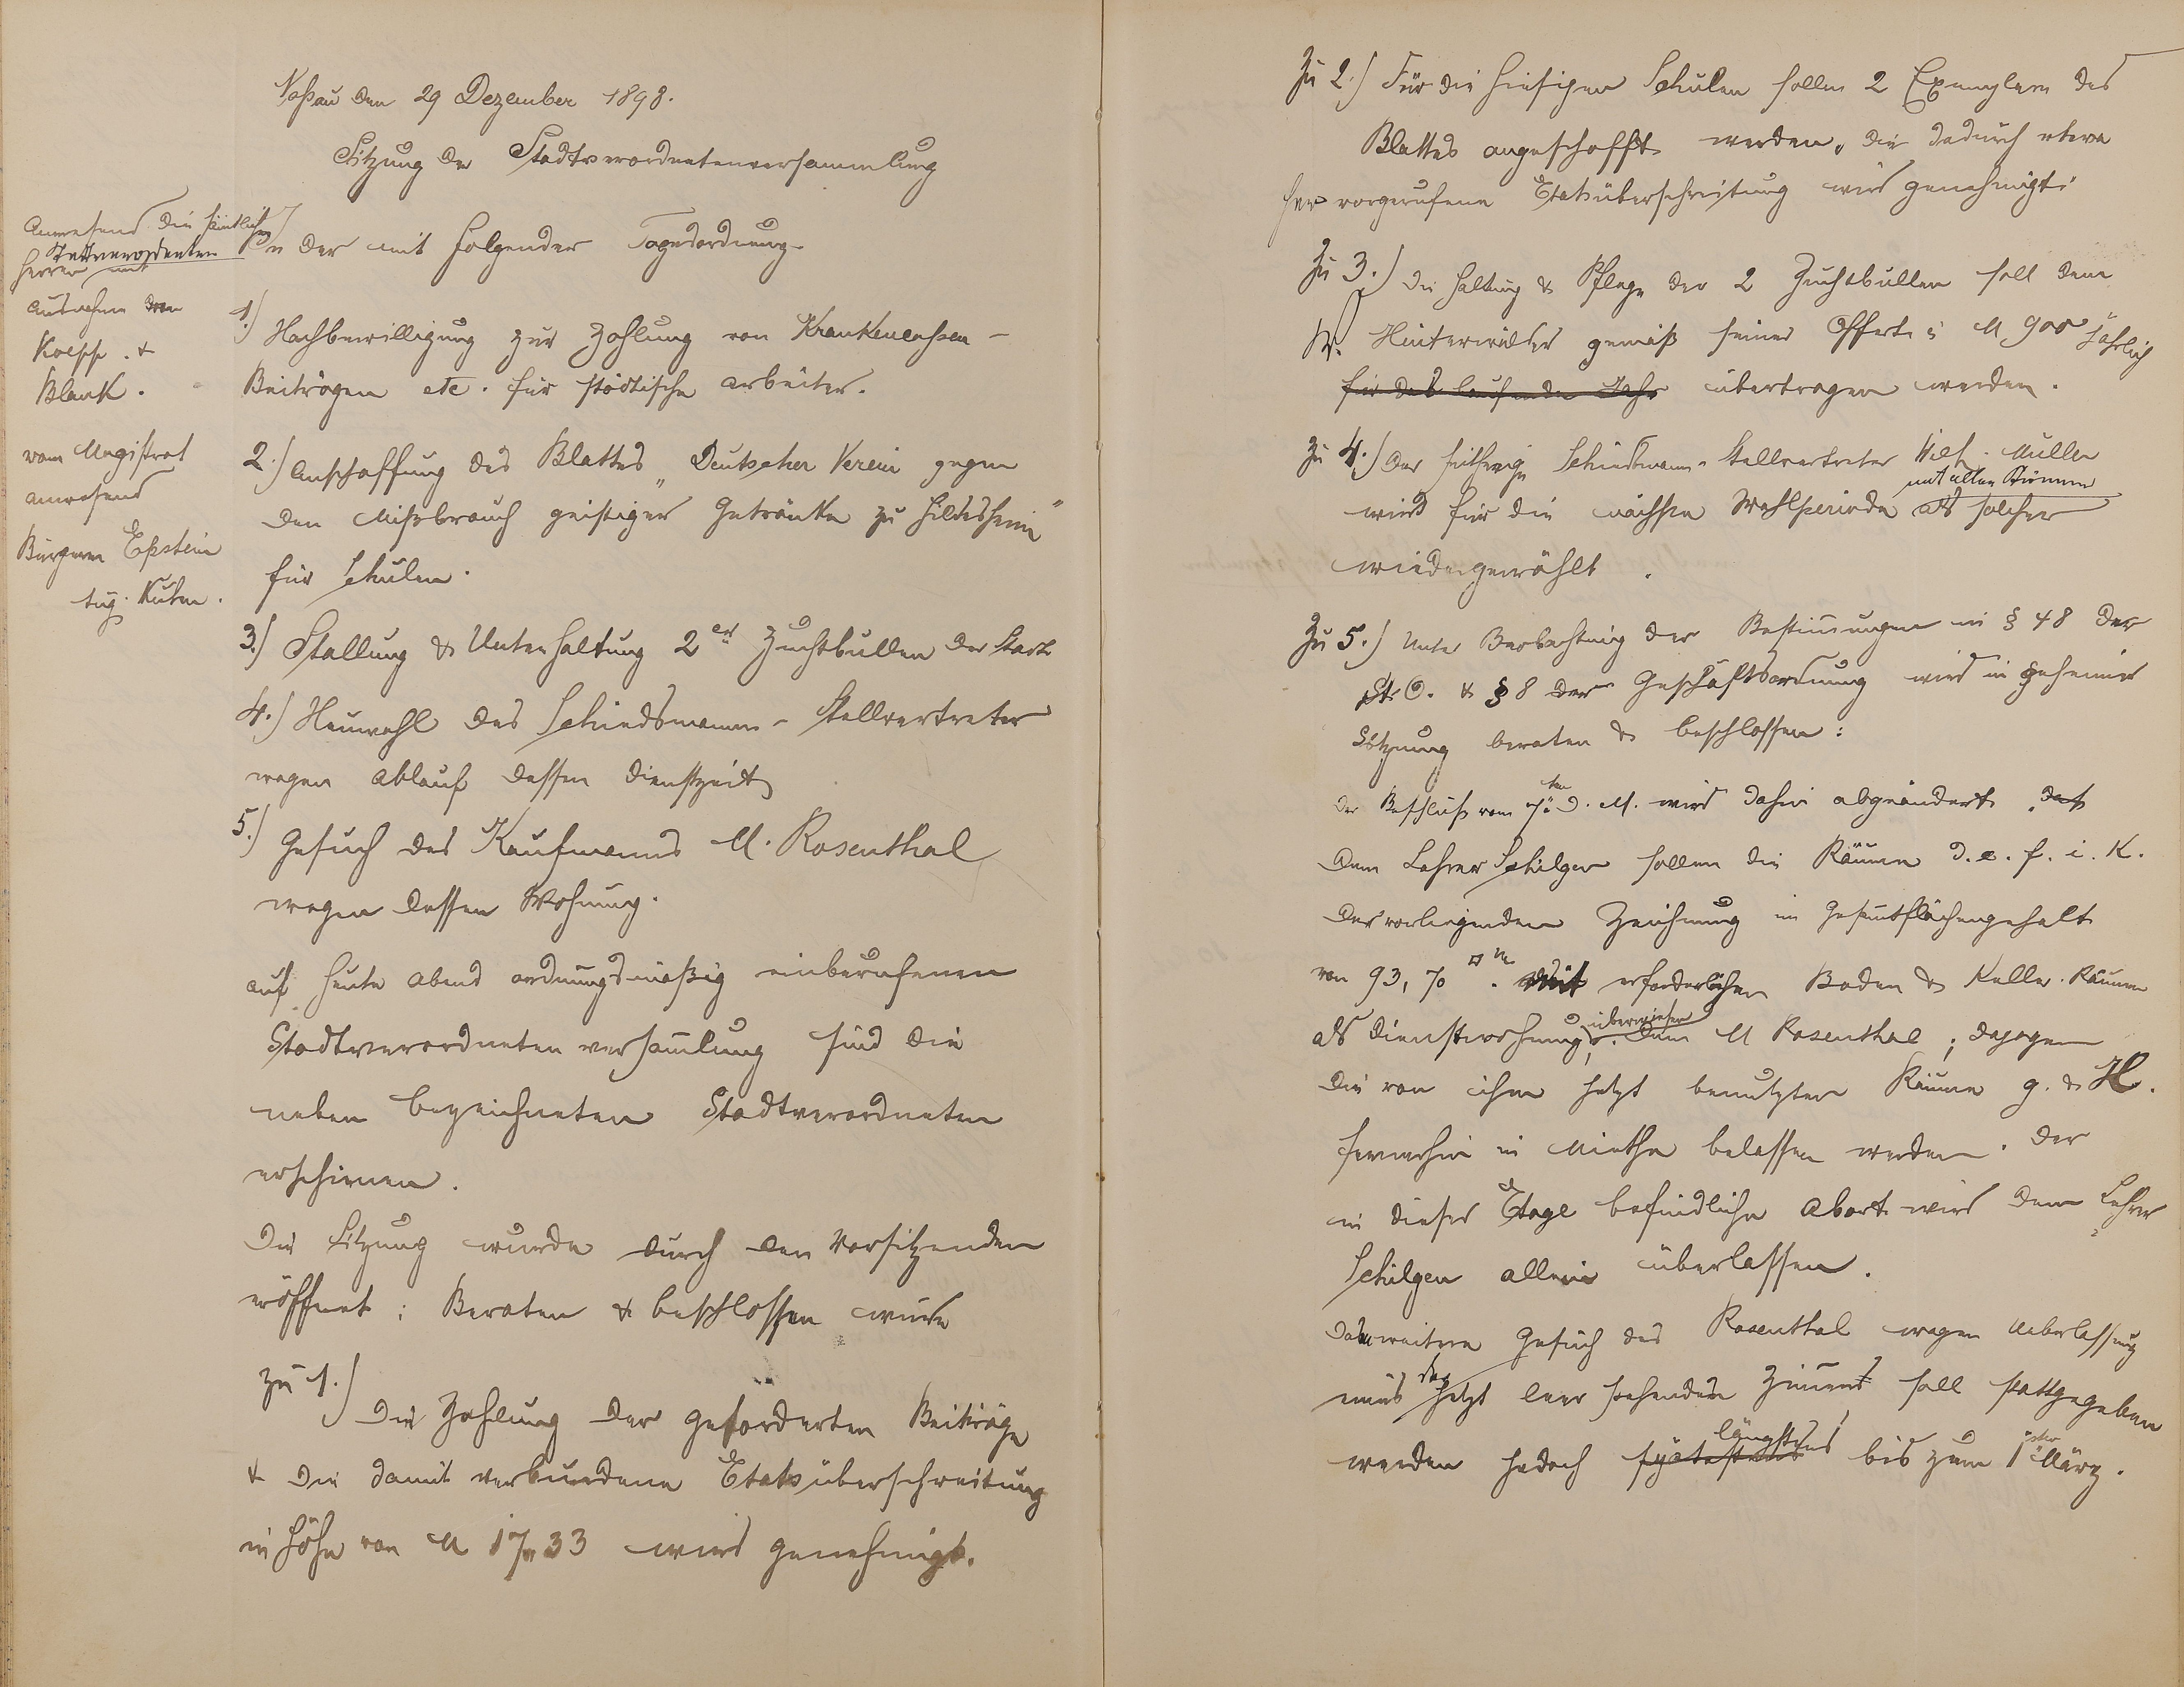 Naßau den 29 Dezember 1898.
Sitzung der Stadtverordnetenversammlung
Anwesend die sämtlichen
Stadtverordneten
Herren mit
Ausnahme von
Koepp. &
Blank.
vom Magistrat
anwesend
Bürgerm Epstein
Kuhn.
In der mit folgender Tagesordnung
1.) Nachbewilligung zur Zahlung von Krankenkassen-
Beiträgen etc. für städtische Arbeiter.
2.) Anschaffung des Blattes „Deutscher Verein gegen
den Mißbrauch geistiger Getränke zu Hildesheim"
für Schulen.
3.) Stallung & Unterhaltung 2er Zuchtbullen der Stadt
4.) Neuwahl des Schiedsmanns-Stellvertreter
wegen Ablauf dessen Dienstzeit
5.) Gesuch des Kaufmanns M. Rosenthal
wegen dessen Wohnung.
auf heute Abend ordnungsmäßig einberufenen
Stadtverordnetenversam̅lung sind die
neben bezeichneten Stadtverordneten
erschienen.
Die Sitzung wurde durch den Vorsitzenden
eröffnet: Beraten & beschlossen wurde
zu 1.) Die Zahlung der geforderten Beiträge
& die damit verbundene Etatsüberschreitung
in Höhe von M 17,33 wird genehmigt.
Zu 2.) Für die hiesigen Schulen sollen 2 Exemplare des
Blattes angeschafft werden, die dadurch etwa
hervorgerufene Etatsüberschreitung wird genehmigt.
Zu 3.) Die Haltung & Pflege der 2 Zuchtbullen soll dem
W. Hinterwälder gemäß seiner Offerte à M 900 jährlich
für das laufende Jahr übertragen werden.
Zu 4.) Der seitherige Schiedsmann-Stellvertreter Wilh. Müller
mit allen Stimmen
wird für die nächste Wahlperiode als solcher
wiedergewählt.
Zu 5.) Unter Beobachtung der Bestim̅ungen in § 48 der
St. O. & § 8 der Geschäftsordnung wird in geheimer
Sitzung beraten & beschlossen:
Der Beschluß vom 7ten d. M. wird dahin abgeändert, daß
dem Lehrer Schilgen sollen die Räume d. e. f. i. K.
der vorliegenden Zeichnung im Gesamtflächengehalt
von 93,70 □m. mit erforderlichen Boden & Keller. Räumen
als Dienstwohnung überwiesen, dem M Rosenthal; dagegen
die von ihm jetzt benutzten Räume g. & H.
fernerhin in Miethe belassen werden. Der
in dieser Etage befindliche Abort wird dem Lehrer
Schilgen allein überlassen.
Dem weitern Gesuch des Rosenthal wegen Ueberlassung
eines jetzt leer stehenden Zim̅ers soll stattgegeben
längstens
werden jedoch spätestens bis zum 1ster März.